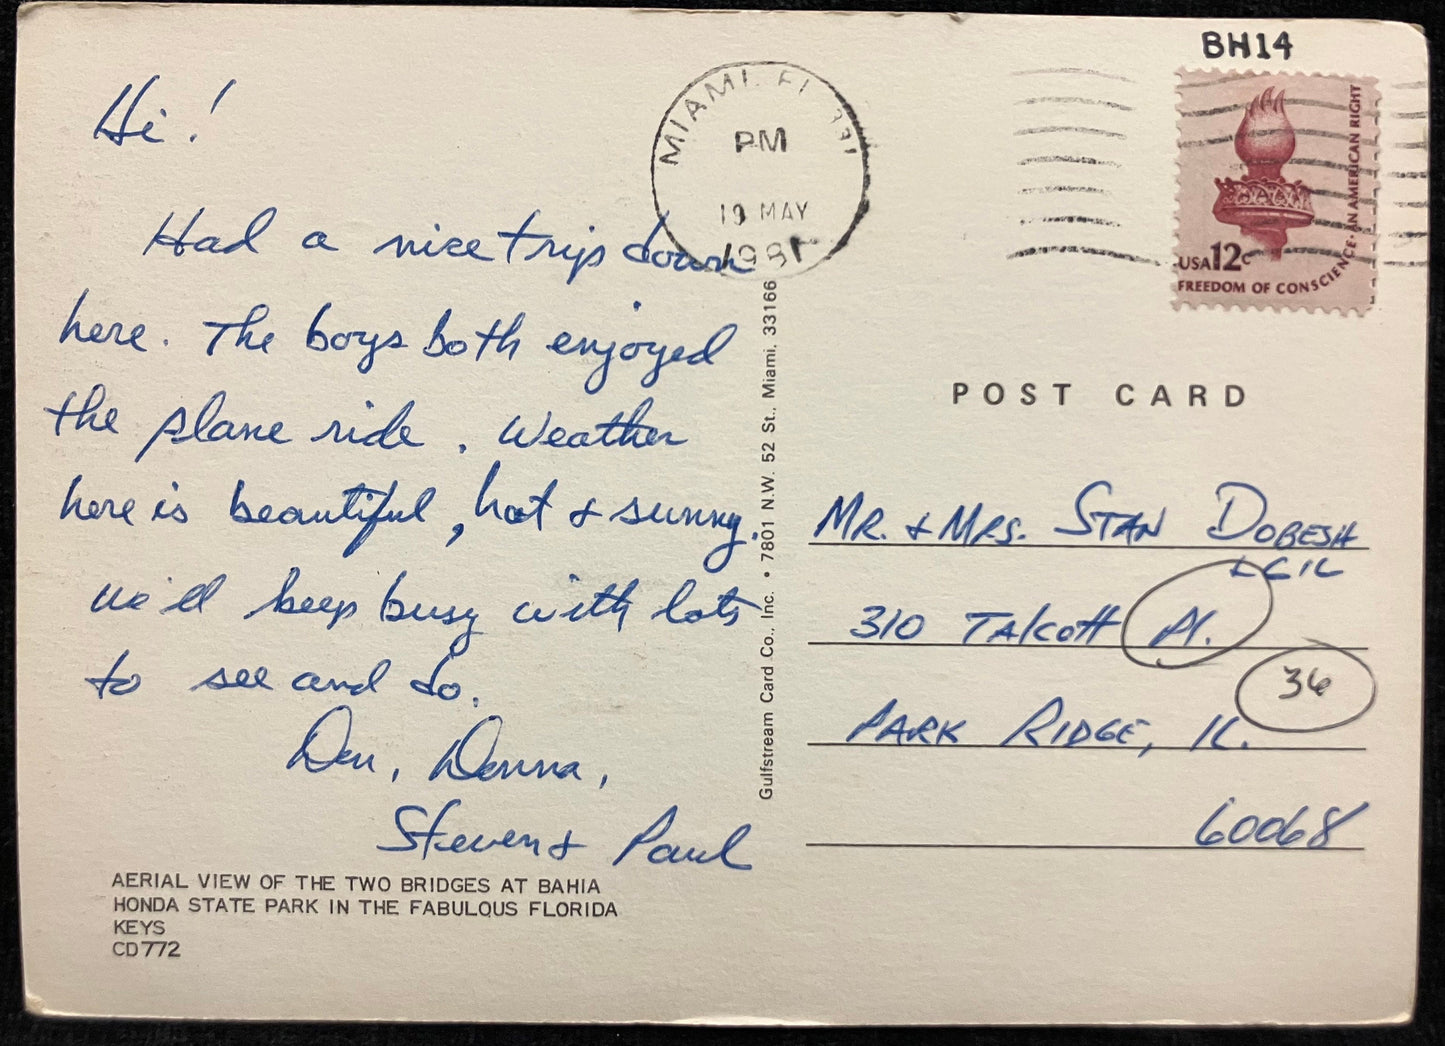 Hi!
Had a nice trip down
here. The boys both enjoyed
the plane ride. Weather
here is beautiful, hot & sunny.
We'll keep busy with lots
to see and do.
Den, Donna,
Steven & Paul
AERIAL VIEW OF THE TWO BRIDGES AT BAHIA
HONDA STATE PARK IN THE FABULOUS FLORIDA
KEYS
CD772
Gulfstream Card Co., Inc. • 7801 N.W. 52 St., Miami, 33166
MIAMI, FL 331
PM
19 MAY
1981
BH14
USA 12c
FREEDOM OF CONSCIENCE-AN AMERICAN RIGHT
POST CARD
MR. & MRS. STAN DOBESH
310 Talcott Pl.
36
PARK RIDGE, IL.
60068